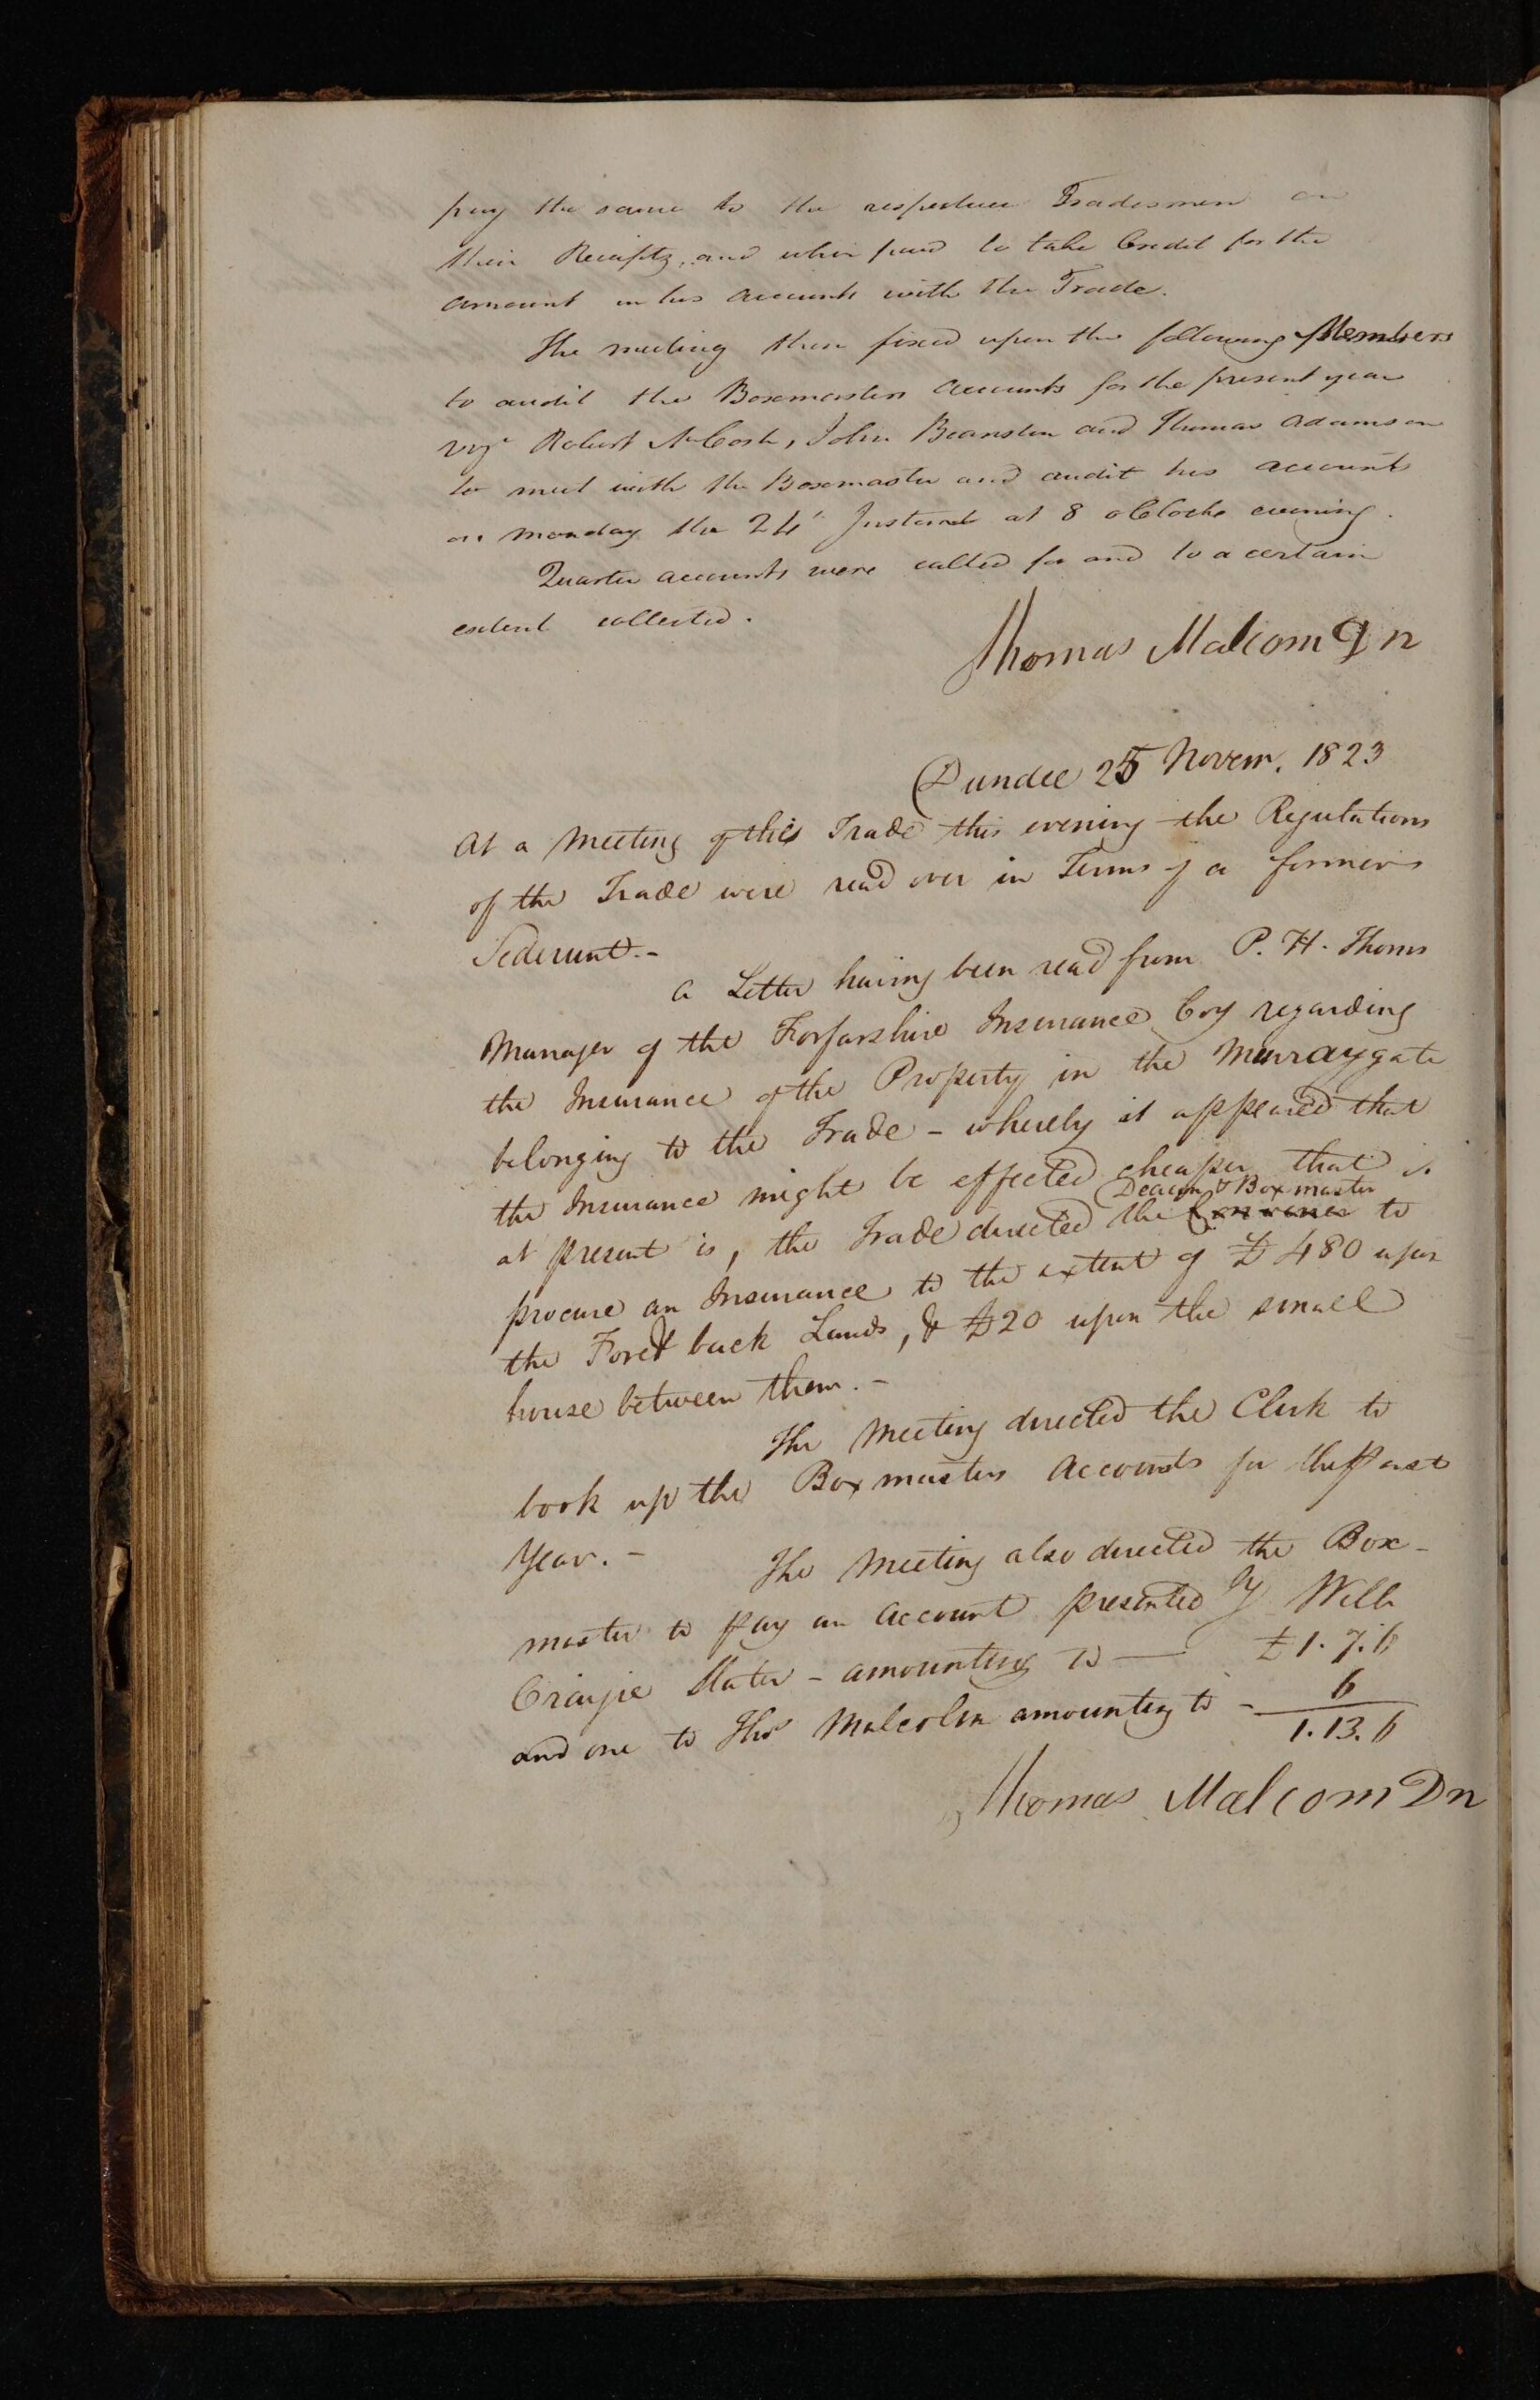 pay the same to the respective Tradesmen on
their Receipts, and when paid to take Credit for the
amount in his accounts with the Trade.
The meeting then fixed upon the following Members
to audit the Boxmasters accounts for the present year
vizt Robert McCosh, John Beanston and Thomas Adamson
to meet with the Boxmaster and audit his account
on Monday the 24th Instant at 8 oClocke evening.
Quarter accounts were called for and to a certain
extent collected.
Thomas Malcom Dn
Dundee 25 Novem. 1823
At a Meeting of this Trade this evening the Regulations
of the Trade were read over in Terms of a former
Sederunt.-
A Letter having been read from P. H. Thoms
Manager of the Forfarshire Insurance Coy regarding
the Insurance of the Property in the Murraygate
belonging to the Trade - whereby it appeared that
the Insurance might be effected cheaper that is
Deacon & Boxmaster
at present is, the Trade directed the to
procure an Insurance to the extent of £480 upon
the Fore & back Lands, & £20 upon the small
house between them.-
The Meeting directed the Clerk to
book up the Boxmasters Accounts for the past
Year.-
The Meeting also directed the Box-
master to pay an Account presented by Willm
Craigie Slater - amounting to — £1.7.6
and one to Thos Malcolm amounting to - 6
1.13.6
Thomas Malcom Dn